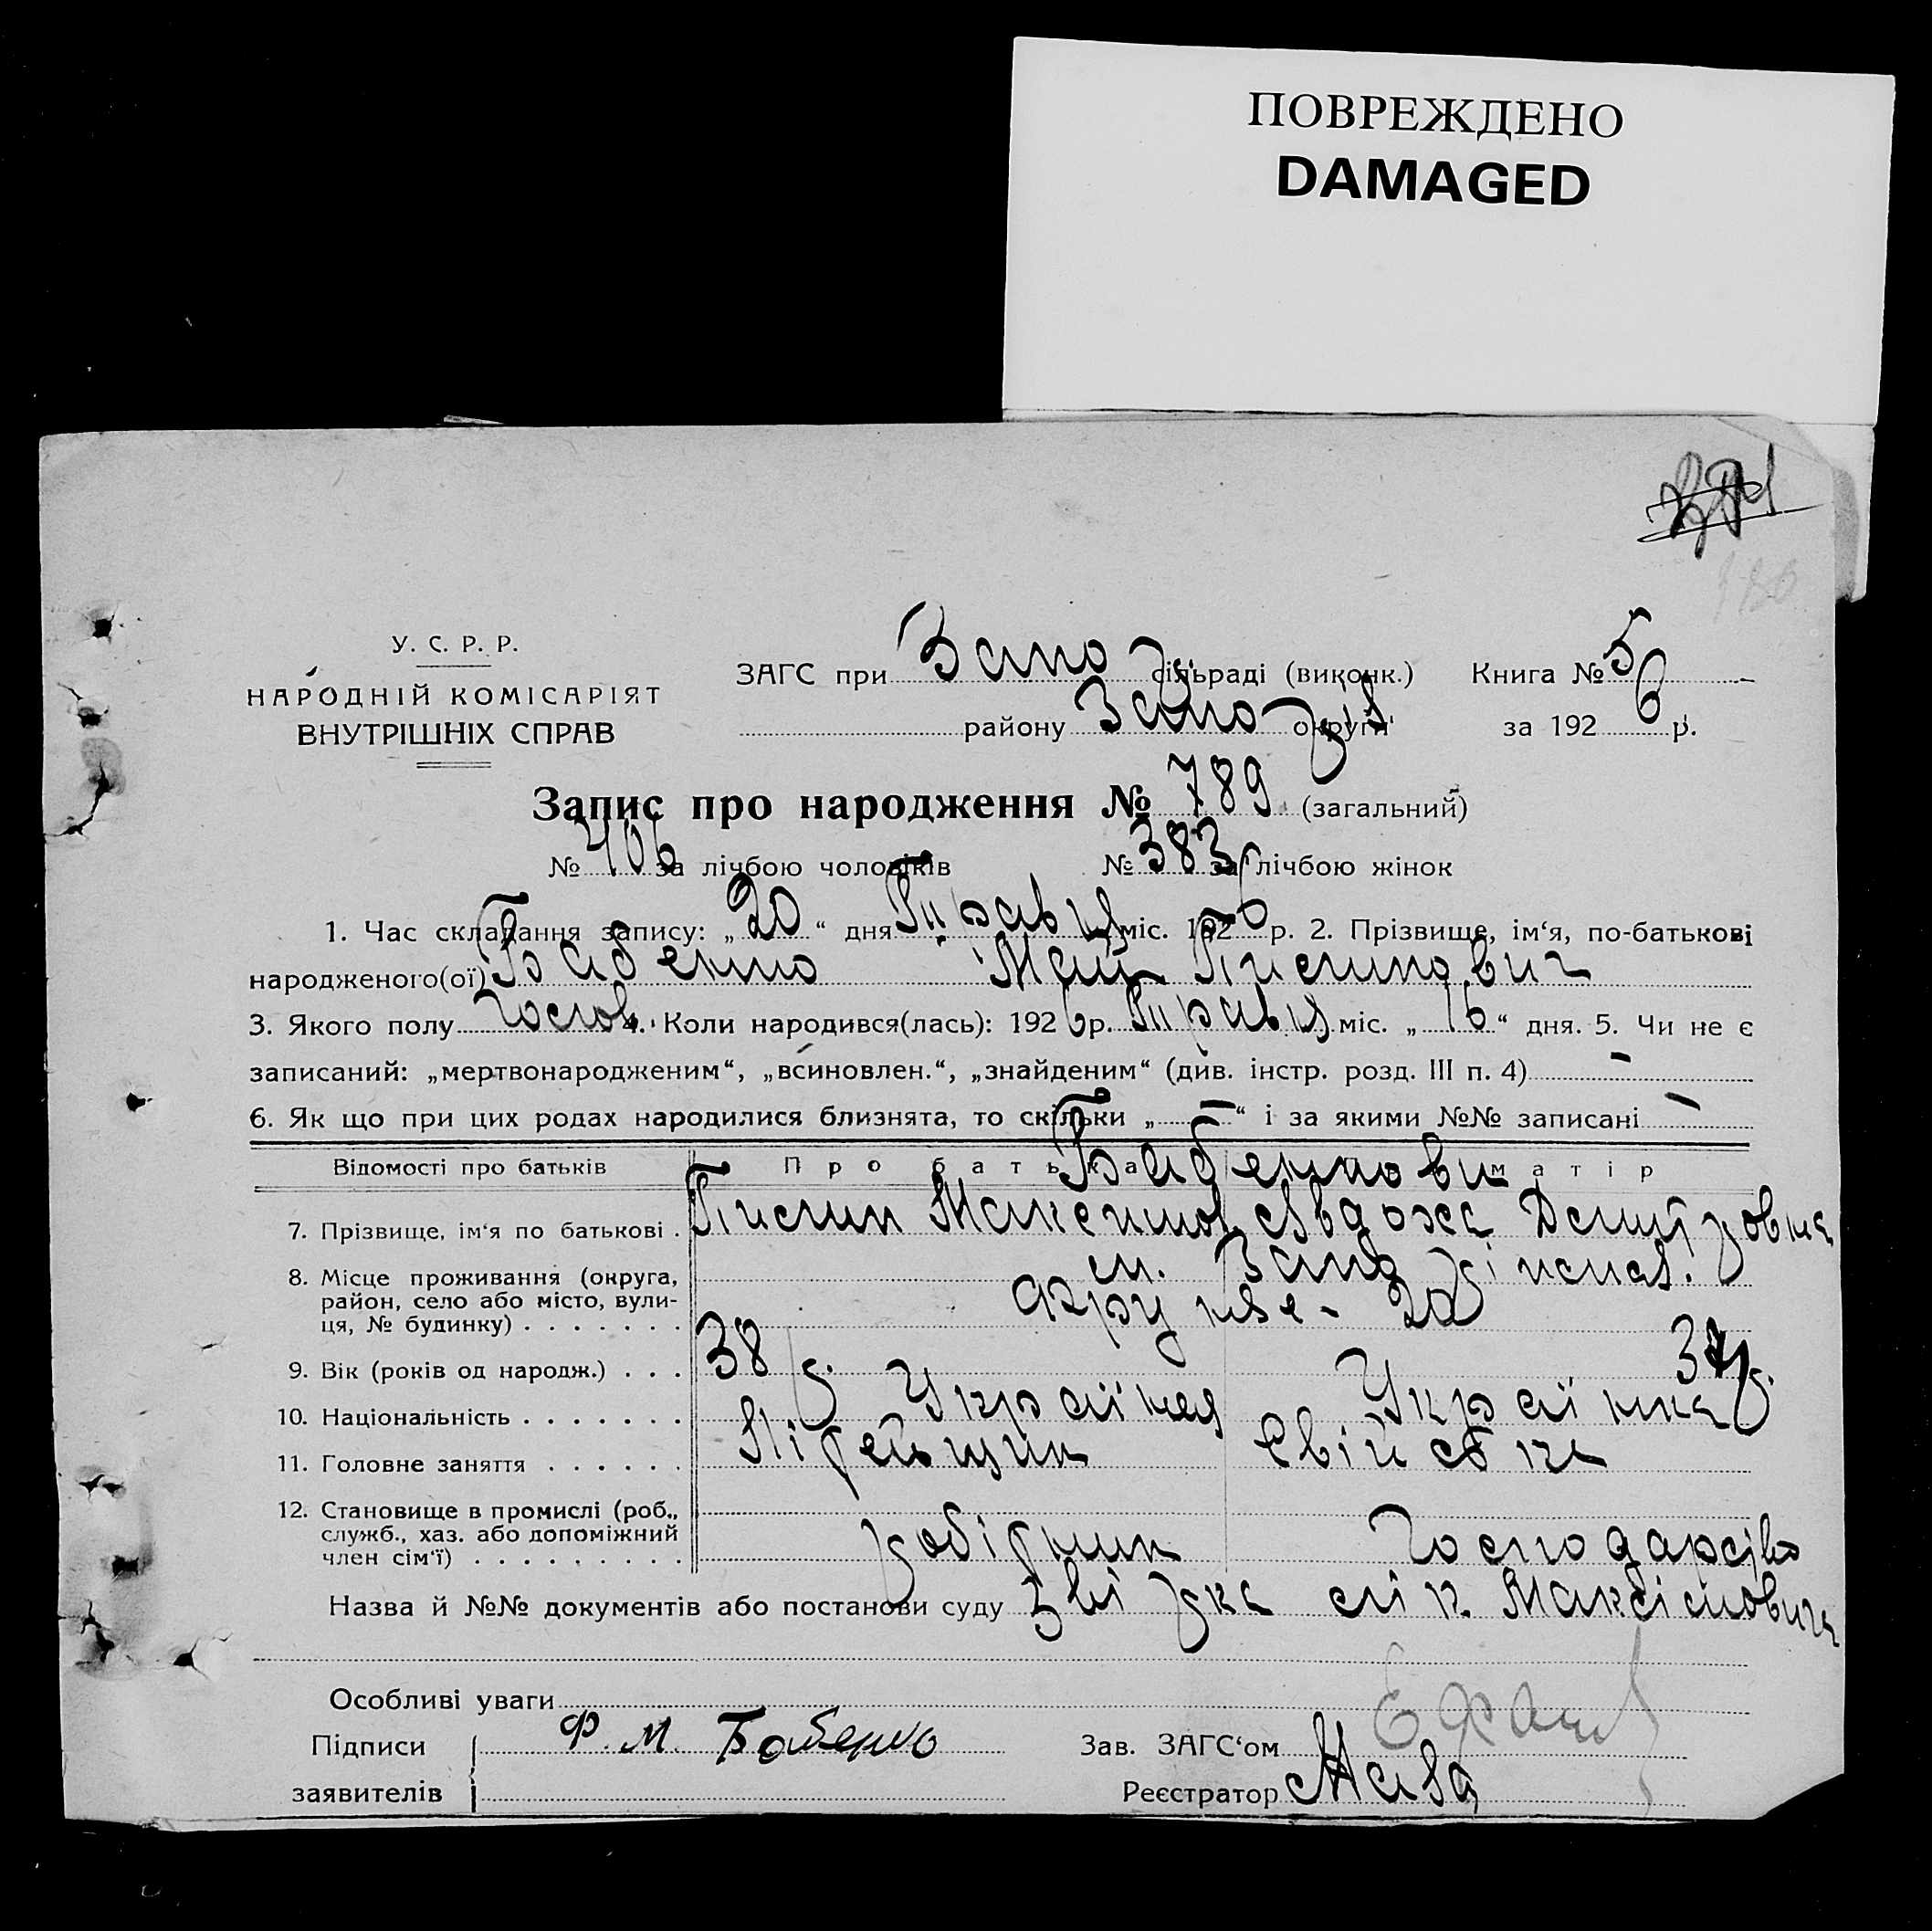 ПОВРЕЖДЕНО
DAMAGED
У. С. Р. Р.
НАРОДНІЙ КОМІСАРІЯТ
ВНУТРІШНІХ СПРАВ
ЗАГС при Запо сільраді (виконк.) Книга № 5
району Запо округи за 1926 р.
Запис про народження № 789 (загальний)
№ 406 за лічбою чоловіків № 383 за лічбою жінок
1. Час складання запису: „20“ дня Травня міс. 1926 р. 2. Прізвище, ім‘я, по-батькові
народженого(ої) Бабенко
3. Якого полу Чолов. 4. Коли народився(лась): 1926 р. Травня міс. „16“ дня. 5. Чи не є
записаний: „мертвонародженим“, „всиновлен.“, „знайденим“ (див. інстр. розд. III п. 4) –
6. Як що при цих родах народилися близнята, то скільки „–“ і за якими №№ записані –
Відомості про батьків Про батька матір
Бабенкови
7. Прізвище, ім‘я по батькові . Явдоха Демитровна
8. Місце проживання (округа, район, село або місто, вулиця, № будинку) . . . . . . .
9. Вік (років од народж.) . . . 38 р.
10. Національність . . . . . . . Українец Українка
11. Головне заняття . . . . . .
12. Становище в промислі (роб., служб., хаз. або допоміжний член сім‘ї) . . . . . . . . . робідник Господарство
Назва й №№ документів або постанови суду
Особливі уваги
Підписи заявителів Ф. М. Бабенко
Зав. ЗАГС‘ом
Реєстратор